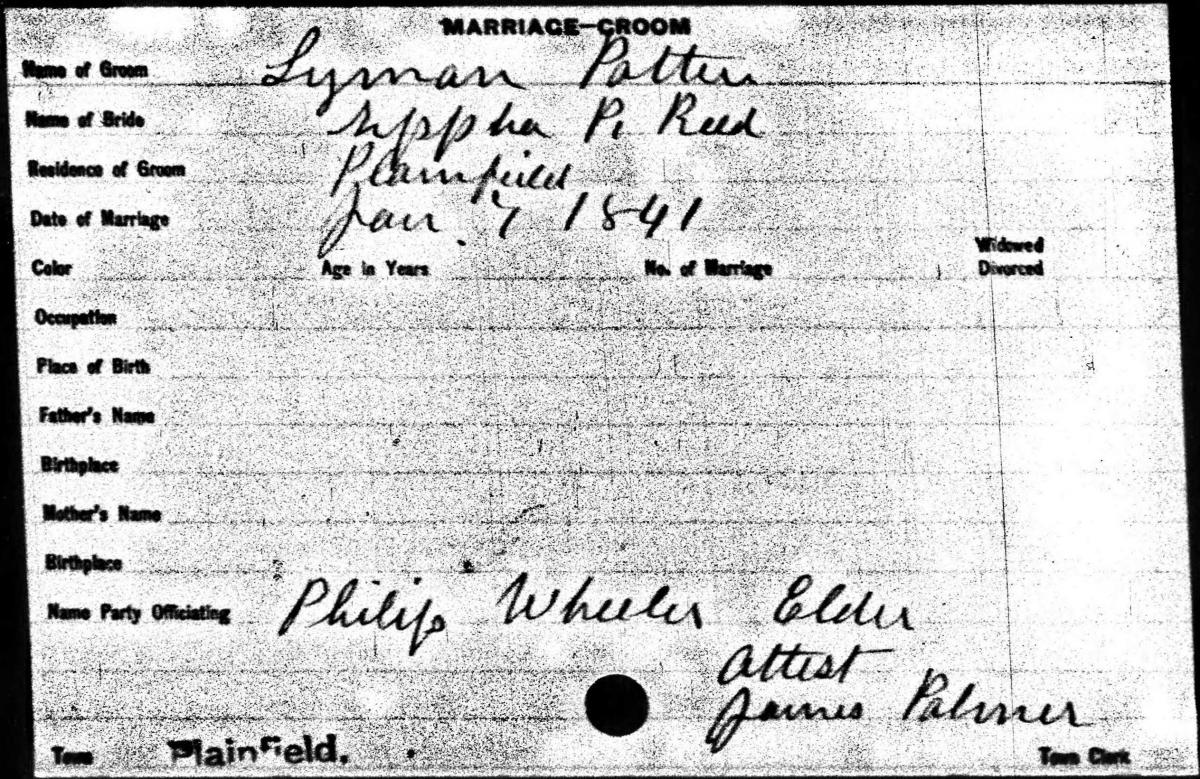 MARRIAGE—GROOM
Name of Groom Lyman Potter
Name of Bride P. Reed
Residence of Groom Plainfield
Date of Marriage Jan. 7 1841
Widowed
Color Age in Years No. of Marriage Divorced
Occupation
Place of Birth
Father's Name
Birthplace
Mother's Name
Birthplace
Name Party Officiating Philip Wheeler Elder
Attest
James Palmer
Town Plainfield. Town Clerk